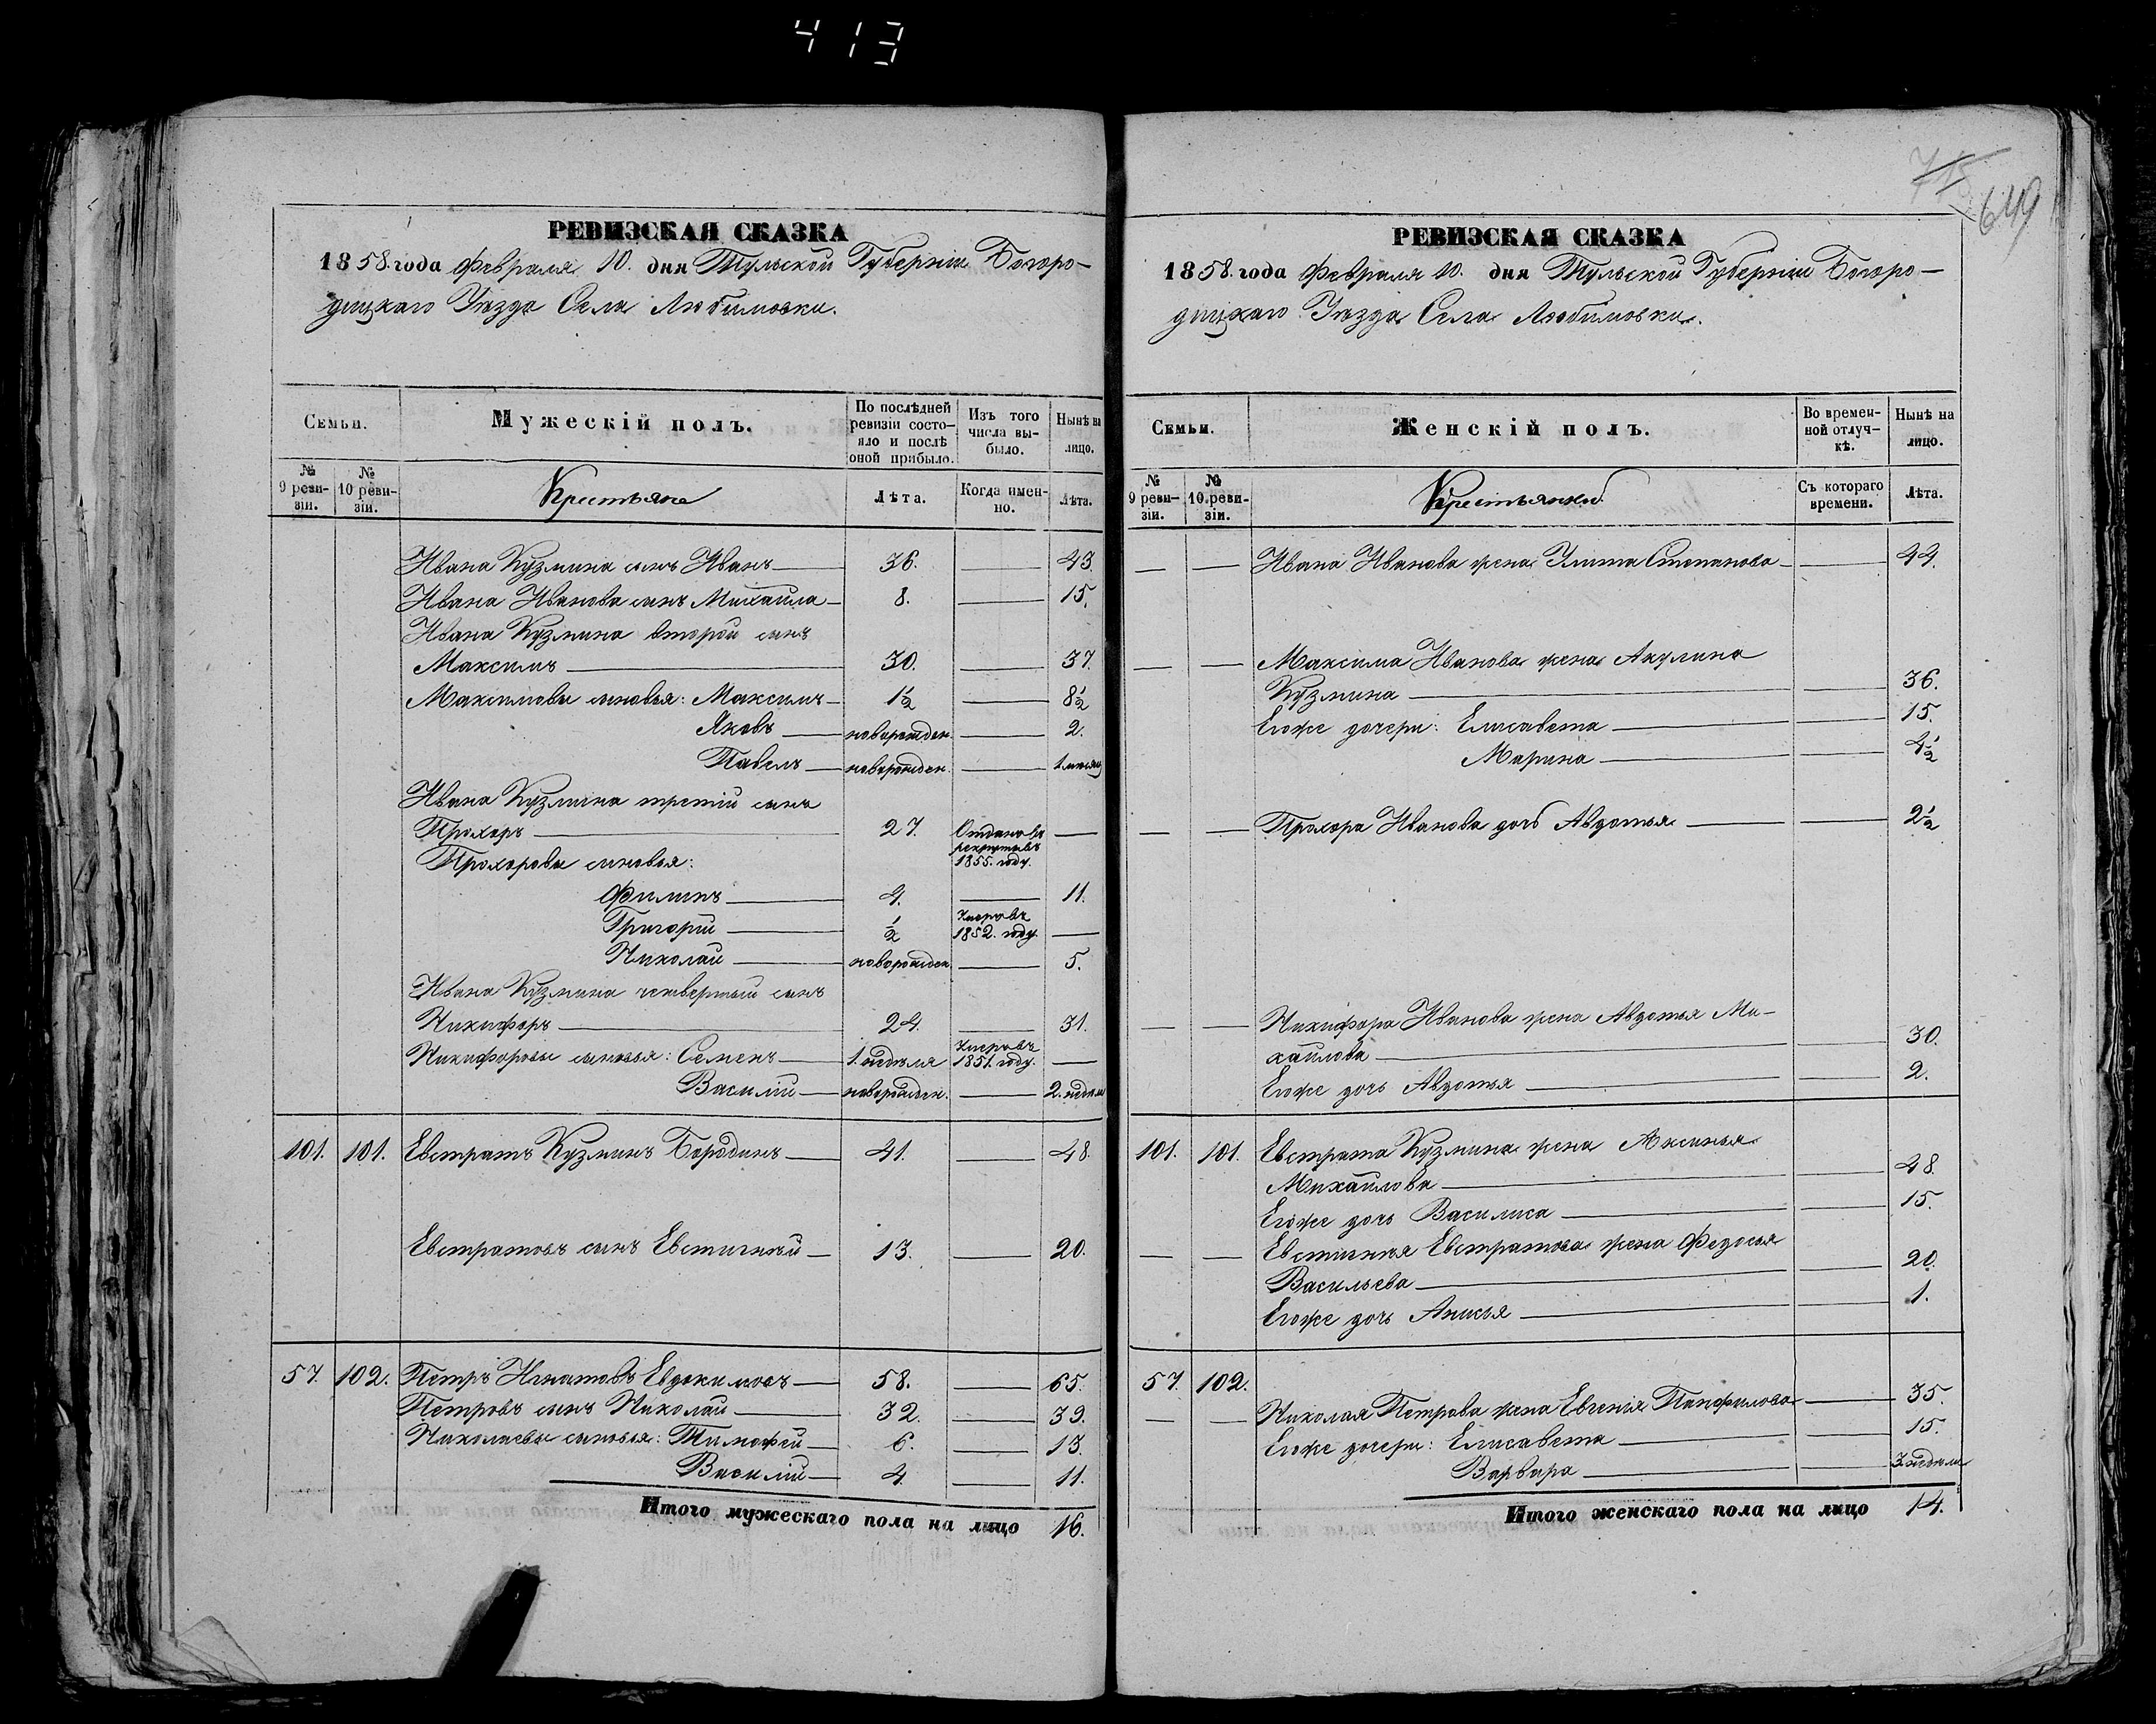 413
РЕВИЗСКАЯ СКАЗКА
1858. года Февраля 10. дня Тульской Губерніи Богоро-
дицкаго Уѣзда Села Любимовки.
Семьи.
Мужескій полъ.
По послѣдней
ревизіи состо-
яло и послѣ
оной прибыло.
Изъ того
числа вы-
было.
Нынѣ на
лицо.
№
9 реви-
зіи.
№
10 реви-
зіи.
Крестьяне
Лѣта.
Когда имен-
но.
Лѣта.
Ивана Кузмина сынъ Иванъ 36. 43.
Ивана Иванова сынъ Михаила 8. 15.
Ивана Кузмина второй сынъ
Максимъ 30. 37.
Максимовы сыновья: Максимъ 1½ 8½
Яковъ новорожден. 2.
Павелъ новорожден. 1 мѣсяц
Ивана Кузмина третій сынъ
Прохоръ 27. Отданъ въ
рекруты въ
1855. году.
Прохоровы сыновья:
Филипъ 4. 11.
Григорій ½ Умеръ въ
1852. году.
Николай новорожден. 5.
Ивана Кузмина четвертый сынъ
Никифоръ 24. 31.
Никифоровы сыновья: Семенъ 1. недѣля Умеръ въ
1851. году.
Василій новорожден. 2. недѣли
101. 101. Евстратъ Кузминъ Бородинъ 41. 48.
Евстратовъ сынъ Евстигнѣй 13. 20.
57. 102. Петръ Игнатовъ Евдокимовъ 58. 65.
Петровъ сынъ Николай 32. 39.
Николаевы сыновья: Тимофей 6. 13.
Василій 4. 11.
Итого мужескаго пола на лицо 16.
715
649
РЕВИЗСКАЯ СКАЗКА
1858. года Февраля 10. дня Тульской Губерніи Богоро-
дицкаго Уѣзда Села Любимовки.
Семьи.
Женскій полъ.
Во времен-
ной отлуч-
кѣ.
Нынѣ на
лицо.
№
9 реви-
зіи.
№
10 реви-
зіи.
Крестьянки
Съ котораго
времени.
Лѣта.
Ивана Иванова жена Улита Степанова 44.
Максима Иванова жена Акулина
Кузмина 36.
Егоже дочери: Елисавета 15.
Марина 4½
Прохора Иванова дочь Авдотья 2½
Никифора Иванова жена Авдотья Ми-
хайлова 30.
Егоже дочь Авдотья 2.
101. 101. Евстрата Кузмина жена Аксинья
Михайлова 48.
Егоже дочь Василиса 15.
Евстигнѣя Евстратова жена Федосья
Васильева 20.
Егоже дочь Анисья 1.
57. 102.
Николая Петрова жена Евгенія Панфилова 35.
Егоже дочери: Елисавета 15.
Варвара 3 недѣли
Итого женскаго пола на лицо 14.